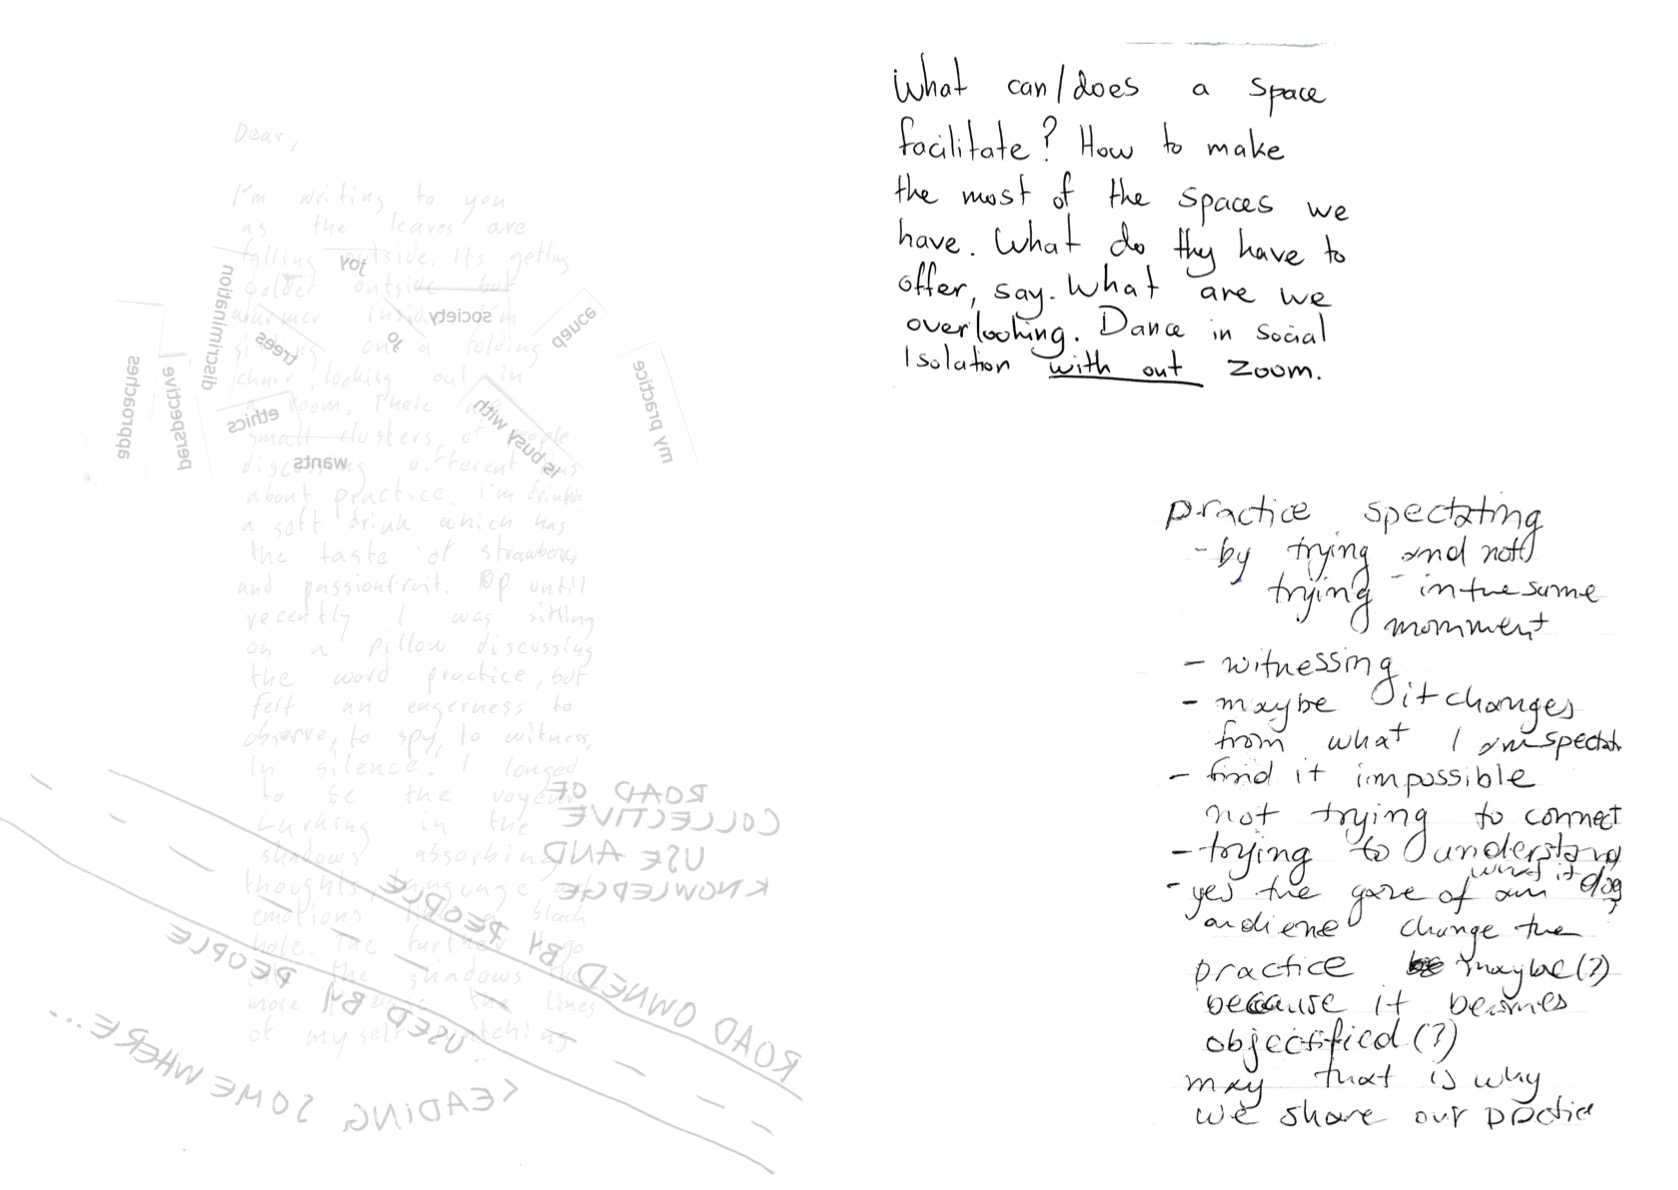 Dear,
I'm writing to you
as the leaves are
falling outside. Its getting
colder outside but
warmer
folding
chair, looking out in
room. There
small clusters of people
different
about practice. I'm
a soft drink which has
the taste of strawberry
and passionfruit. Up until
recently I was sitting
on a pillow discussing
the word practice, but
felt an eagerness to
observe, to spy, to witness,
In silence. I longed
to be the voyeur
Lurking in the
shadows absorbing
thoughts, language
emotions black
hole. The further I go
the shadows the
more the lines
of myself watching
approaches
perspective
discrimination
trees
ethics
wants
joy
to
society
is busy with
dance
my practice
ROAD OF
COLLECTIVE
USE AND
KNOWLEDGE
ROAD OWNED BY PEOPLE
USED BY PEOPLE
LEADING SOMEWHERE...
What can/does a space
facilitate? How to make
the most of the spaces we
have. What do thy have to
offer, say. What are we
overlooking. Dance in Social
Isolation with out Zoom.
practice spectating
- by trying and not
trying - in the same
momment
- witnessing
- maybe it changes
from what I am spectat
- find it impossible
not trying to connect
- trying to understand
what it does
- yes the gaze of an
audiene change the
practice maybe(?)
because it becomes
objectified (?)
may that is why
we share our practice